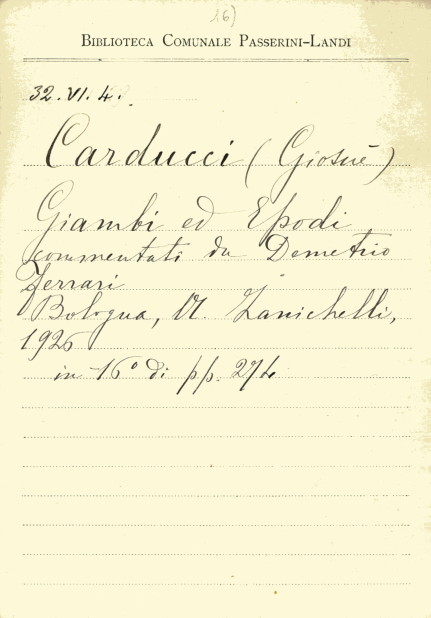 16)
BIBLIOTECA COMUNALE PASSERINI-LANDI
32. VI. 4.
Carducci (Giosuè)
Giambi ed Epodi
commentati da Demetrio
Ferrari
Bologna, N. Zanichelli,
1926
in 16° di pp. 274